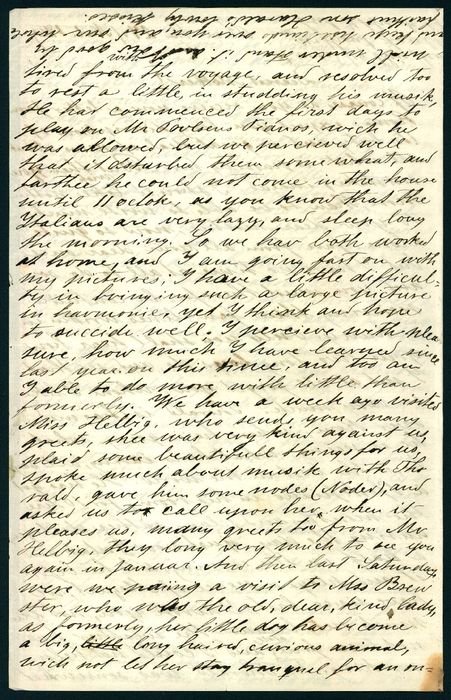 tired from the voyage, and resolved too
to rest a little, in studding his musik,
He had commenced the first days to
play on Mr Lovlsens Pianos, wich he
was allowed, but we percieved well
that it disturbed them somewhat, and
farther he could not come in the house
until 11 oclok, as you know that the
Italians are very lazy, and sleep long
the morning. So we hav both worked
at home, and I am going fast on with
my pictures; I have a little difficul-
ty in bringing such a large picture
in harmonie, yet I think and hope
to succide well. I percieve with plea
sure, how much I have learned since
last year on this time, and too am
I able to do more with little than
formerly. We have a week ago visited
Miss Helbig, who sends you many
greets, shee was very kind against us,
plaid some beautifull things for us,
spoke much about musik with Tho
rald, gave him some nodes (Noder), and
asked us to call upon her when it
pleases us, many greets too from Mr
Helbig, they long very much to see you
again in Januar. And then last Saturday
were we paing a visit to Mss Brew
ster, who was the old, dear, kind lady,
as formerly, her little dog has become
a big, little long haired, curious animal,
wich not let her stay tranquel for an on-